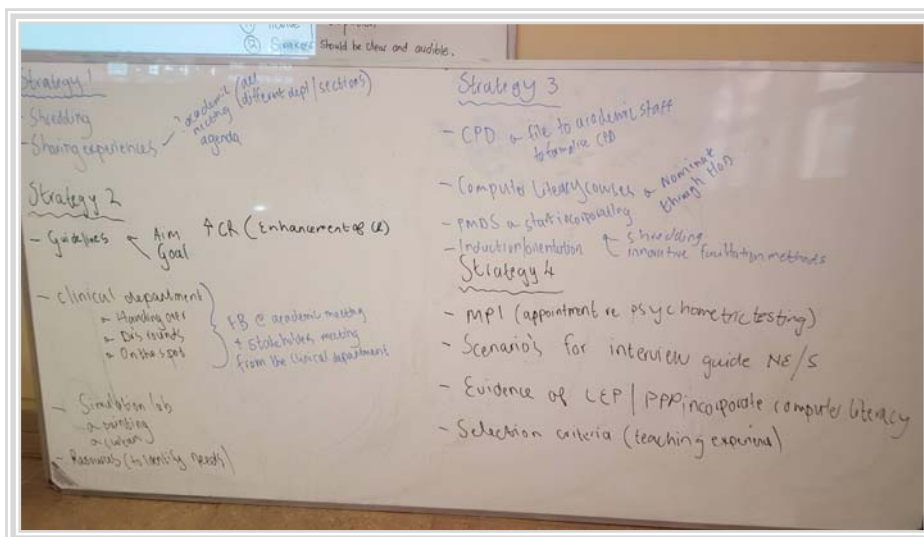 ② Speakers should be clear and audible.
Strategy 1
- Shredding
- Sharing experiences
academic meeting agenda
(all different dept/sections)
Strategy 2
- Guidelines
Aim
Goal
↑ CR (Enhancement of CR)
- Clinical department
Handing over
Drs rounds
On the spot
FB @ academic meeting
& Stakeholders meeting
from the clinical department
- Simulation lab
- Resources (to identify needs)
Strategy 3
- CPD file to academic staff
to formalise CPD
- Computer literacy courses
Nominate
through HoD
- PMDS start incorporating
- Induction/orientation
shredding
innovative facilitation methods
Strategy 4
- MPI (appointment re psychometric testing)
- Scenario's for interview guide NE/S
- Evidence of LEP / PPP incorporate computer literacy
- Selection criteria (teaching experience)